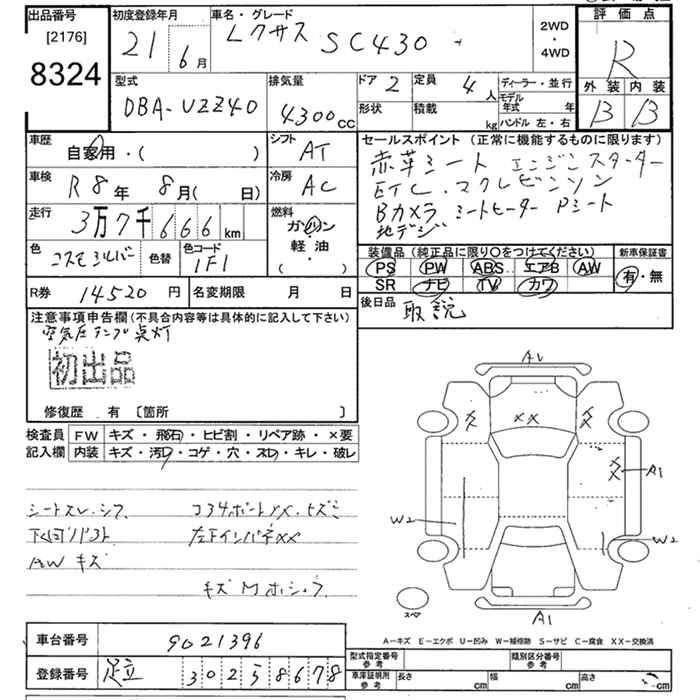 出品番号
[2176]
8324
初度登録年月
21 6 月
車名・グレード
レクサス SC430
2WD
・
4WD
評価点
R
外装 内装
B B
型式
DBA-UZZ40
排気量
4300 CC
ドア 2
形状
定員 4 人
積載 kg
ディーラー・並行
モデル
年式 年
ハンドル 左・右
車歴
自家用・( )
シフト
AT
車検
R 8 年 8 月( 日)
冷房
AC
走行
3万7千666 km
燃料
ガソリン
軽油
( ・ )
色
コスモシルバー
色替
色コード
1F1
セールスポイント(正常に機能するものに限ります)
赤革シート エンジンスターター
ETC.マクレビンソン
Bカメラ シートヒーター Pシート
地デジ
装備品(純正品に限り〇をつけてください)
PS PW ABS エアB AW
SR ナビ TV カワ
新車保証書
有・無
R券 14520 円
名変期限 月 日
後日品
取説
注意事項申告欄(不具合内容等は具体的に記入して下さい)
空気圧ランプ点灯
初出品
修復歴 有 〔箇所 〕
検査員
記入欄
FW キズ・飛石・ヒビ割・リペア跡・×要
内装 キズ・汚レ・コゲ・穴・スレ・キレ・破レ
シートスレ.シワ
コアサポートXX.ヒズミ
下回リ
左FインパネXX
AW キズ
キズ M
A1
XX
A1
W2
W2
A1
スペア
A-キズ E-エクボ U-凹み W-補修跡 S-サビ C-腐食 XX-交換済
車台番号 9021396
登録番号 足立 302 5 8678
型式指定番号
参考
類別区分番号
参考
車庫証明所
参考
長さ cm
幅 cm
高さ cm